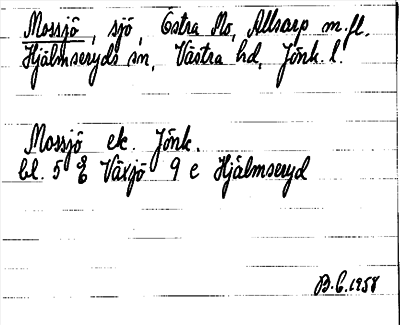 Mossjö, sjö, Östra No, Allsarp m.fl.
Hjälmseryds sn, Västra hd, Jönk. l.
Mossjö ek. Jönk.
bl. 5 E Växjö 9 e Hjälmseryd
B.C. 1958